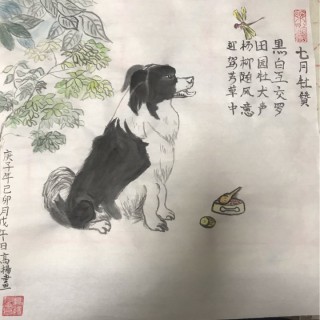 七月牡贊
黑白互交罗
田园牡犬声
杨柯随风意
驾芳草中
庚子年己卯月戊午日高楊畫